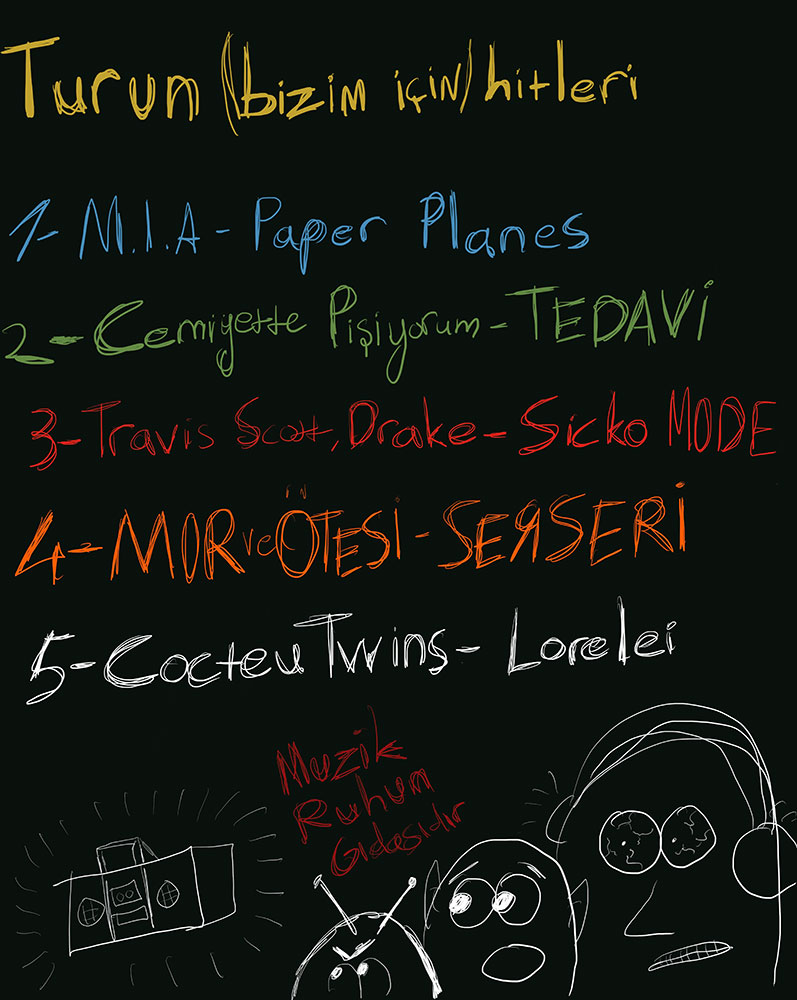 Turun (bizim için) hitleri
1- M.I.A - Paper Planes
2- Cemiyette Pişiyorum - TEDAVİ
3- Travis Scott, Drake - Sicko MODE
4- MOR ve ÖTESİ - SERSERİ
5- Cocteu Twins - Lorelei
Muzik
Ruhum
Gıdasıdır